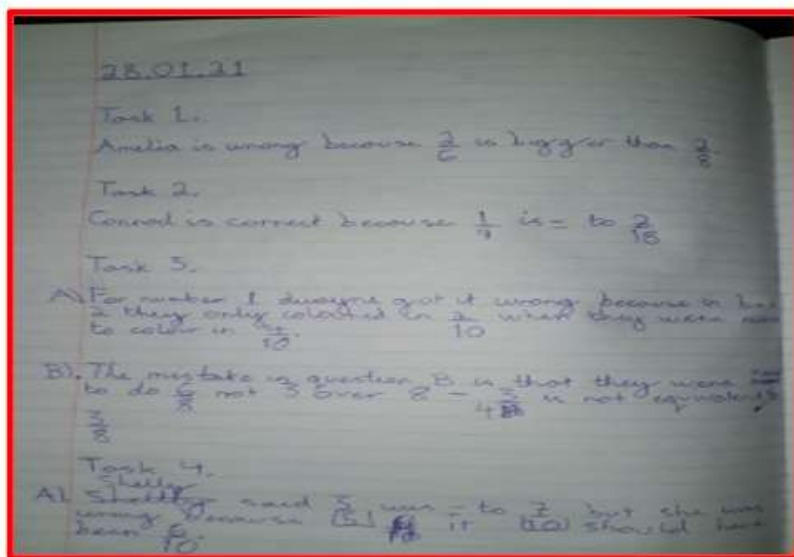 28.01.21
Task 1.
Amelia is wrong because 2/6 is bigger than 2/8.
Task 2.
Connod is correct because 1/9 is = to 2/18
Task 3.
A) For number 1 dwayne got it wrong because in
2 they only coloured in 2/10 when they were
to colour in /10.
B). The mistake in question B is that they were
to do 6/8 not 3 over 8 - 3/4 is not equivalent
3/8
Task 4.
Shelly
A). said 3/5 was = to 7/10 but she was
wrong because it should have
been 6/10.